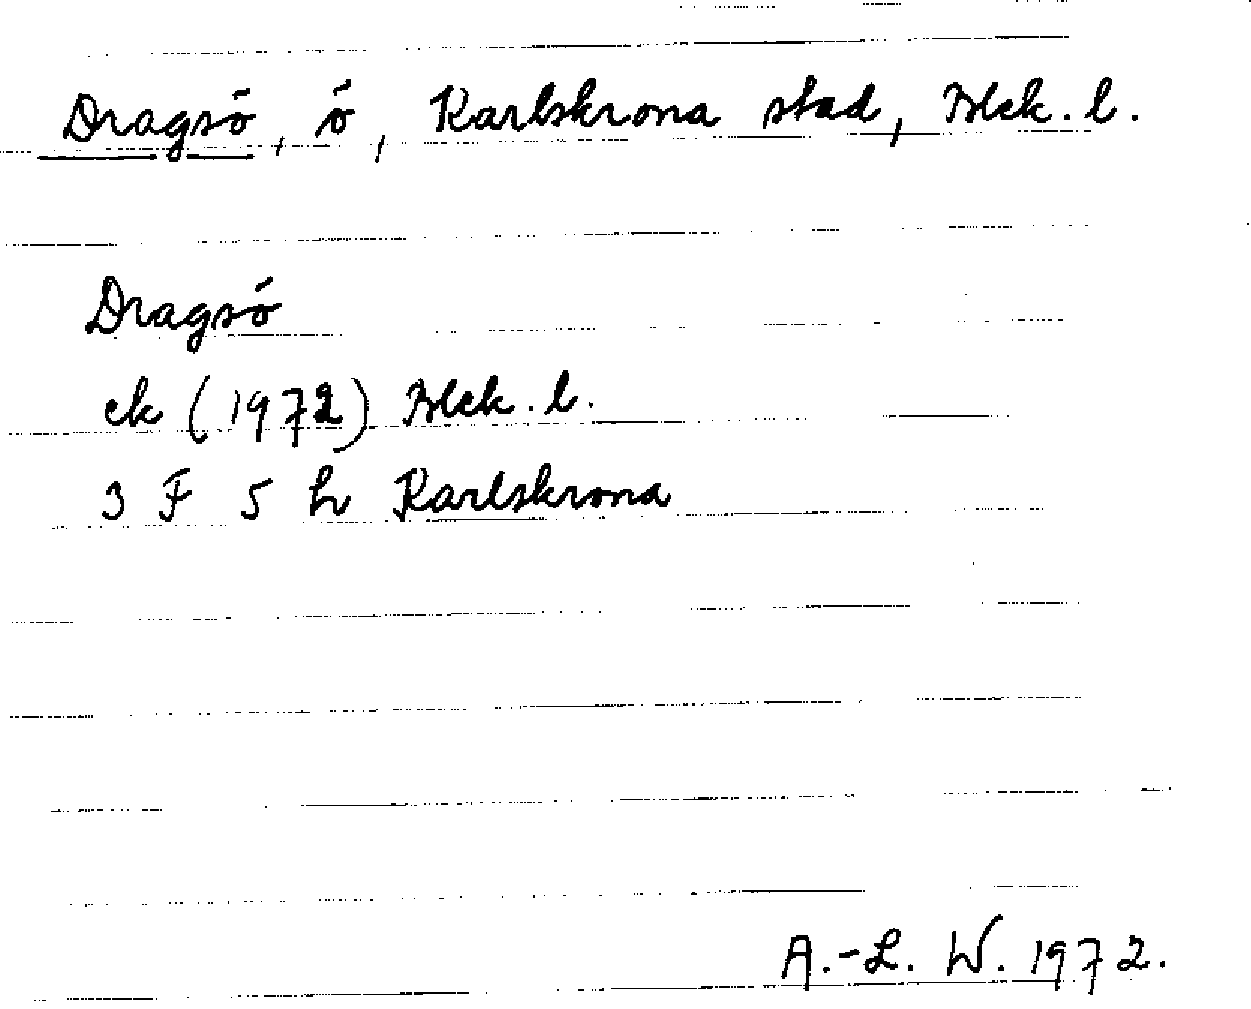 Dragsö, ö, Karlskrona stad, Blek. l.
Dragsö
ek (1972) Blek. l.
3 F 5 h Karlskrona
A.-L. W. 1972.